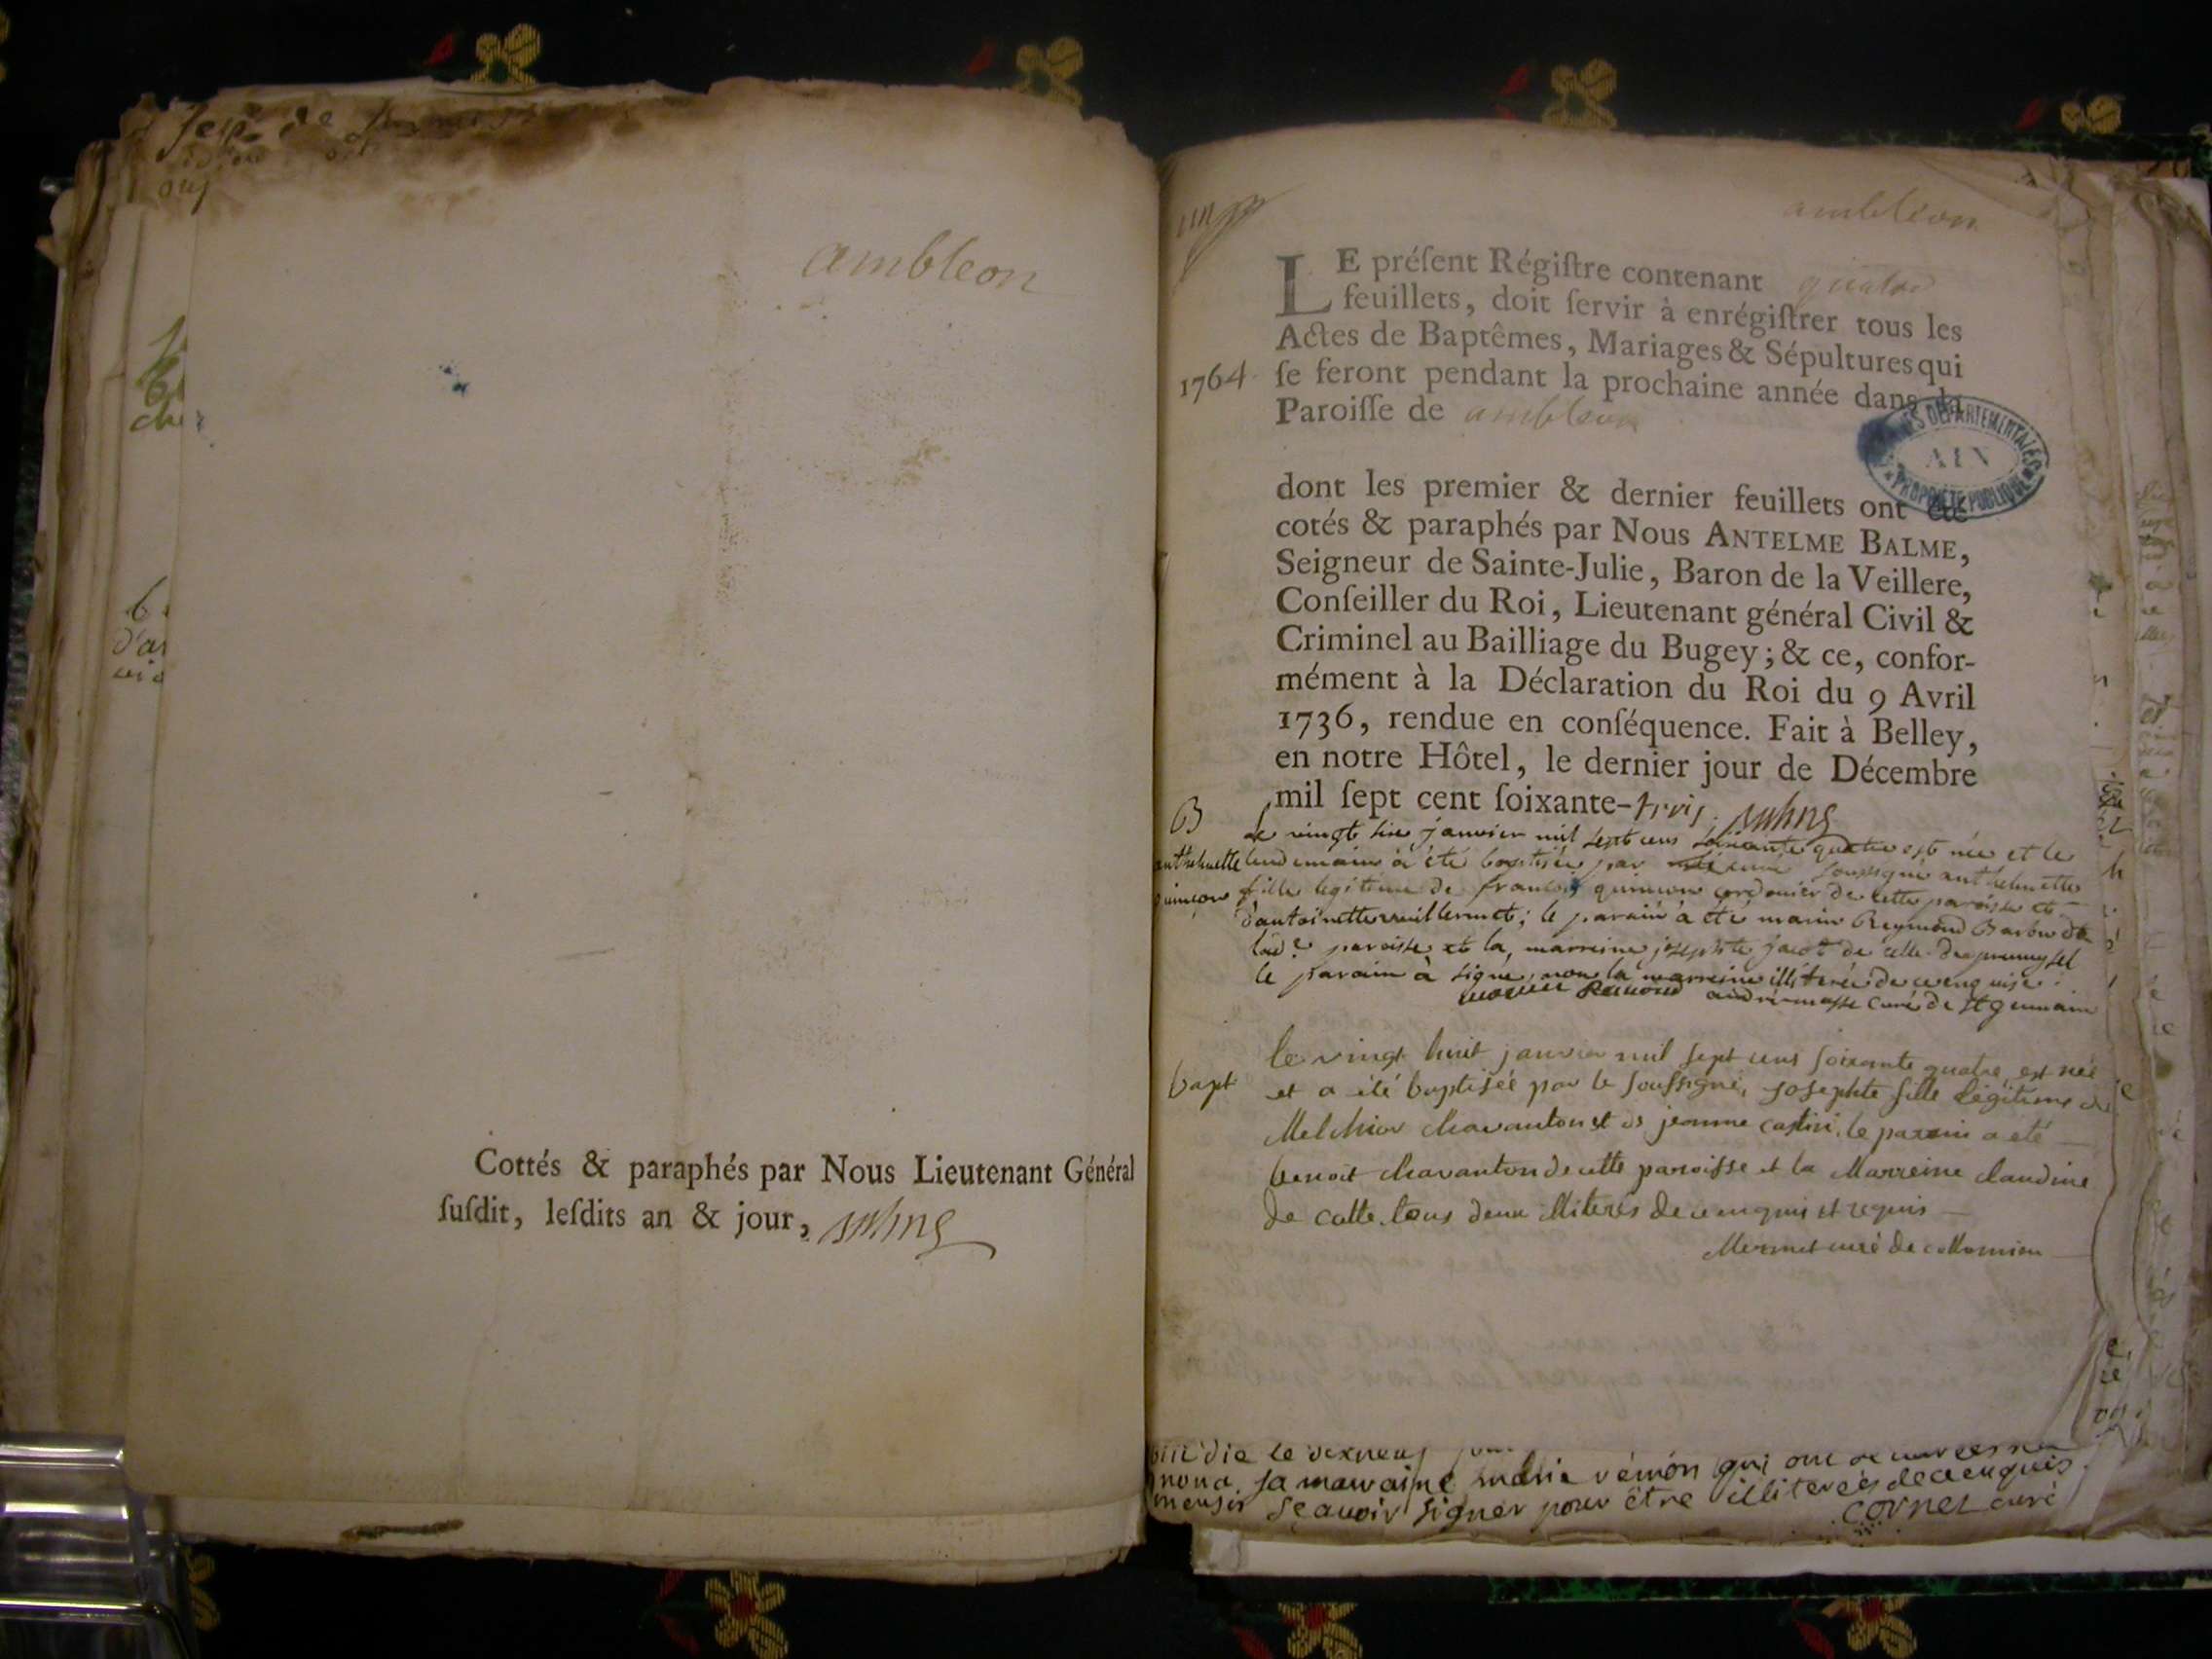 ambleon
Cottés & paraphés par Nous Lieutenant Général
ſuſdit, leſdits an & jour,
ambleon
LE préſent Régiſtre contenant quatre
feuillets, doit ſervir à enrégiſtrer tous les
Actes de Baptêmes, Mariages & Sépultures qui
1764 ſe feront pendant la prochaine année dans la
Paroiſſe de ambleon
DEPARTEMENTALES
AIN
PROPRIÉTÉ PUBLIQUE
dont les premier & dernier feuillets ont été
cotés & paraphés par Nous ANTELME BALME,
Seigneur de Sainte-Julie, Baron de la Veillere,
Conſeiller du Roi, Lieutenant général Civil &
Criminel au Bailliage du Bugey; & ce, confor-
mément à la Déclaration du Roi du 9 Avril
1736, rendue en conſéquence. Fait à Belley,
en notre Hôtel, le dernier jour de Décembre
mil ſept cent ſoixante-trois.
B le vingt six janvier mil sept cens soixante quatre est née et le
anthelmette lendemain à été baptisée par curé soussigné anthelmette
fille legitime de francois cordonier de cette paroisse et
d'antoinette vuillermet; le parain à été marin Reymond
paroisse et la marreine josephte jacot de celle de
le parain à signé, non la marreine illiterée de ce enquise.
curé de st germain
bapt le vingt huit janvier mil sept cens soixante quatre est née
et a été baptisée par le soussigné, josephte fille légitime de
Melchior chavanton et de jeanne le parrain a été
benoit chavanton de cette paroisse et la Marreine claudine
de tous deux illiterés de ce enquis et requis
Mermet curé de collomieu
sa marraine marie rémon qui ont
sçavoir signer pour être illiterés de ce enquis
cornet curé